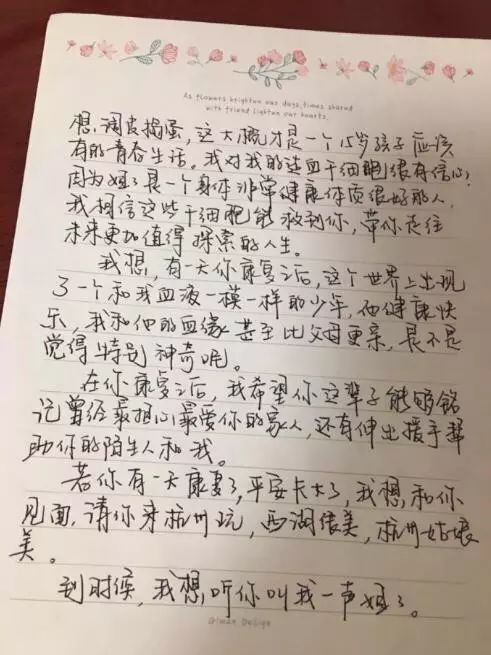 As flowers brighten our days, times shared
with friend lighten our hearts.
想,调皮捣蛋,这大概才是一个15岁孩子应该
有的青春生活。我对我的造血干细胞很有信心,
因为姐姐是一个身体非常健康体质很好的人,
我相信这些干细胞能救到你,带你走往
未来更加值得探索的人生。
我想,有一天你康复之后,这个世界上出现
了一个和我血液一模一样的少年,他健康快
乐,我和他的血缘甚至比父母更亲,是不是
觉得特别神奇呢。
在你康复之后,我希望你这辈子能够铭
记曾经最担心最爱你的家人,还有伸出援手帮
助你的陌生人和我。
若你有一天康复了,平安长大了,我想,和你
见面,请你来杭州玩,西湖很美,杭州姑娘
美。
到时候,我想,听你叫我一声姐姐。
Giman Design